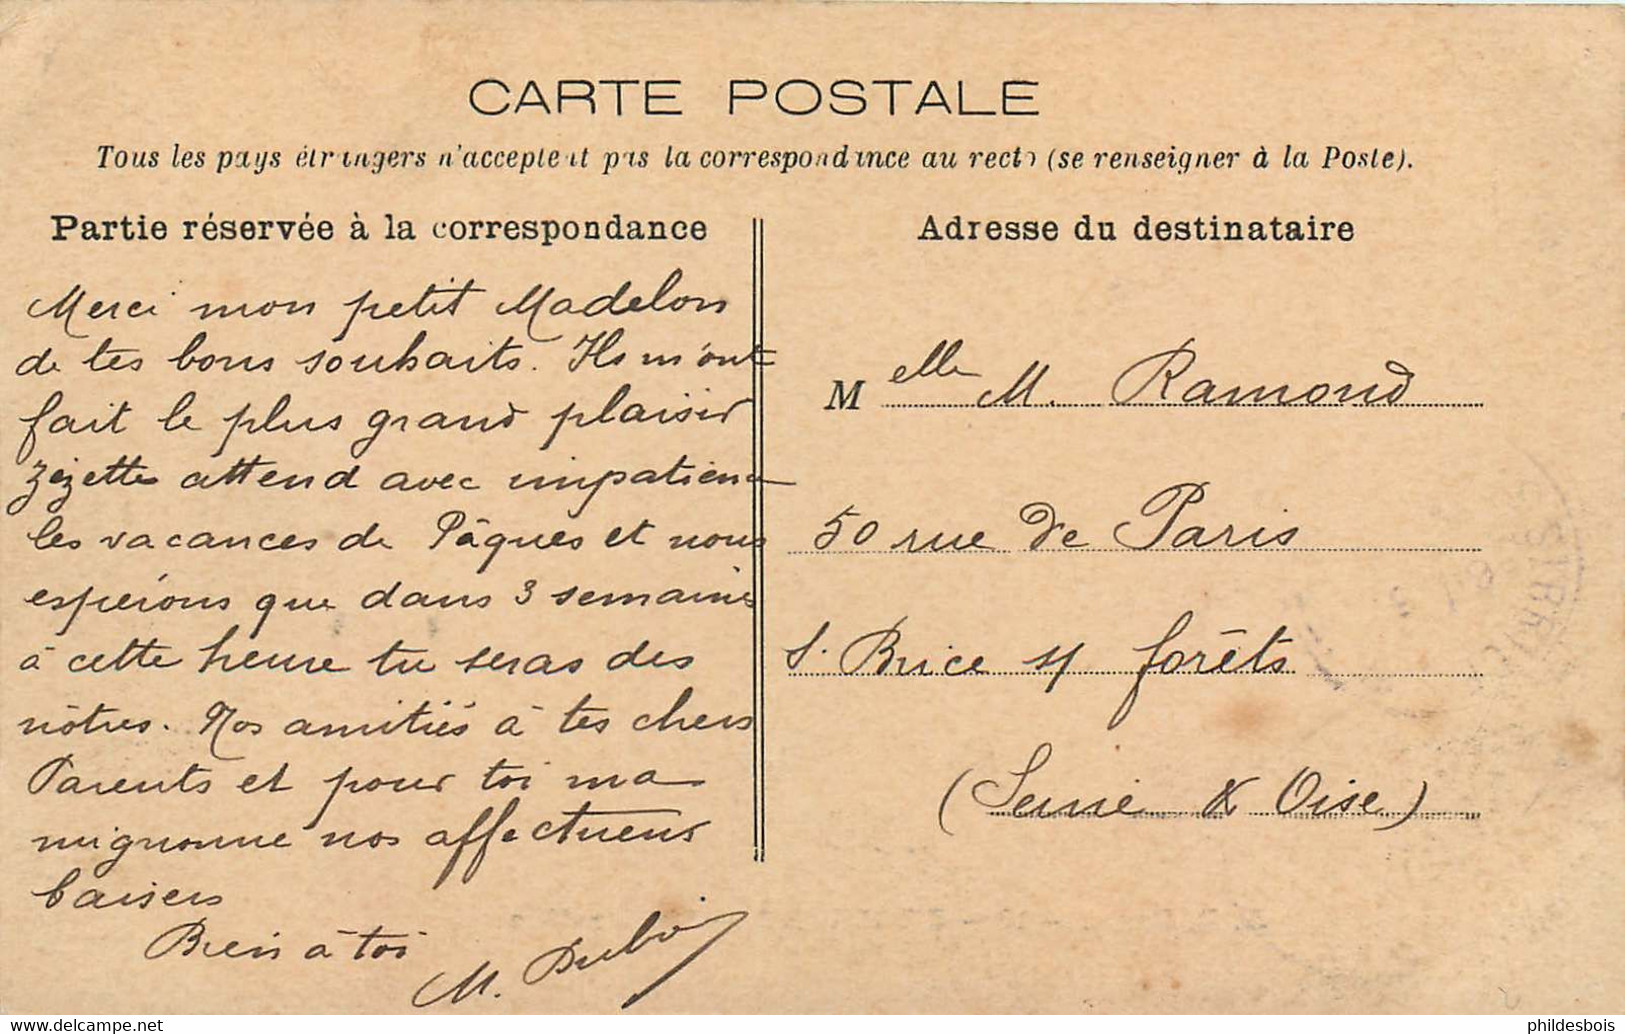 CARTE POSTALE
Tous les pays étrangers n'acceptent pas la correspondance au recto (se renseigner à la Poste).
Partie réservée à la correspondance
Merci mon petit Madelon
de tes bons souhaits. Ils m'ont
fait le plus grand plaisir
Zézette attend avec impatience
les vacances de Pâques et nous
espérons que dans 3 semaines
à cette heure tu seras des
nôtres. Nos amitiés à tes chers
Parents et pour toi ma
mignonne nos affectueux
baisers
Bien à toi
M. Dubois
Adresse du destinataire
Melle M. Ramond
50 rue de Paris
S. Brice s/ forêts
(Seine & Oise)
phildesbois